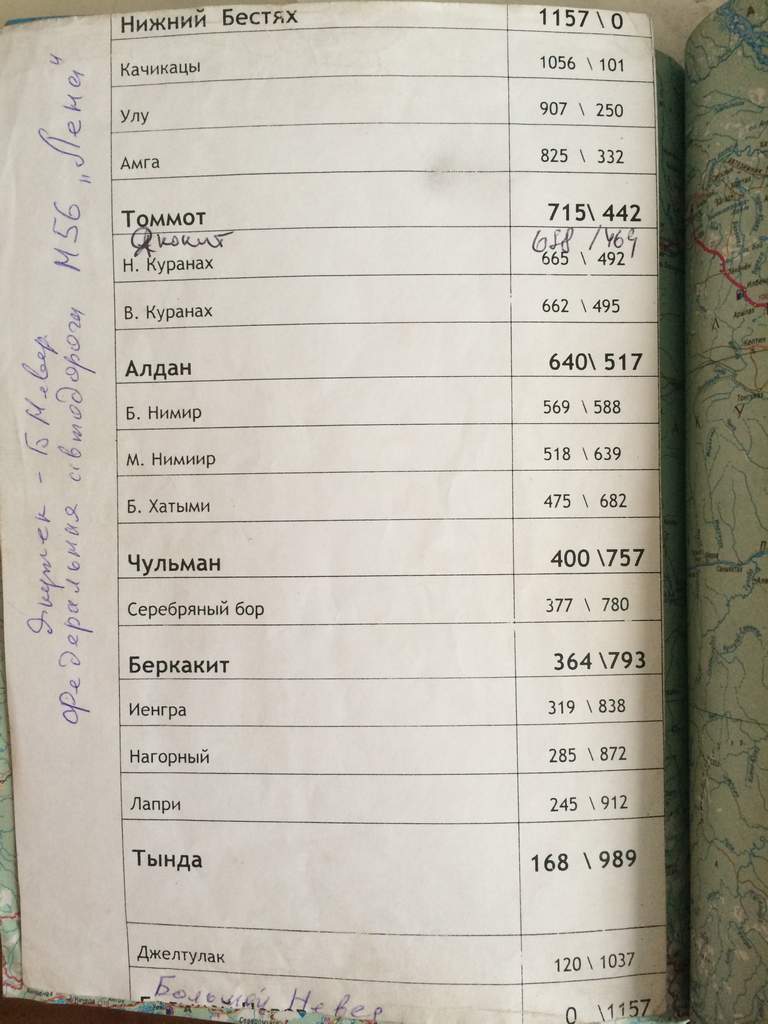 Якутск - Б Невер
Федеральная автодорога М56 „Лена"
Нижний Бестях 1157 \ 0
Качикацы 1056 \ 101
Улу 907 \ 250
Амга 825 \ 332
Томмот 715\ 442
Якокит 688 / 469
Н. Куранах 665 \ 492
В. Куранах 662 \ 495
Алдан 640\ 517
Б. Нимир 569 \ 588
М. Нимиир 518 \ 639
Б. Хатыми 475 \ 682
Чульман 400 \757
Серебряный бор 377 \ 780
Беркакит 364 \793
Иенгра 319 \ 838
Нагорный 285 \ 872
Лапри 245 \ 912
Тында 168 \ 989
Джелтулак 120 \ 1037
Большой Невер 0 \1157